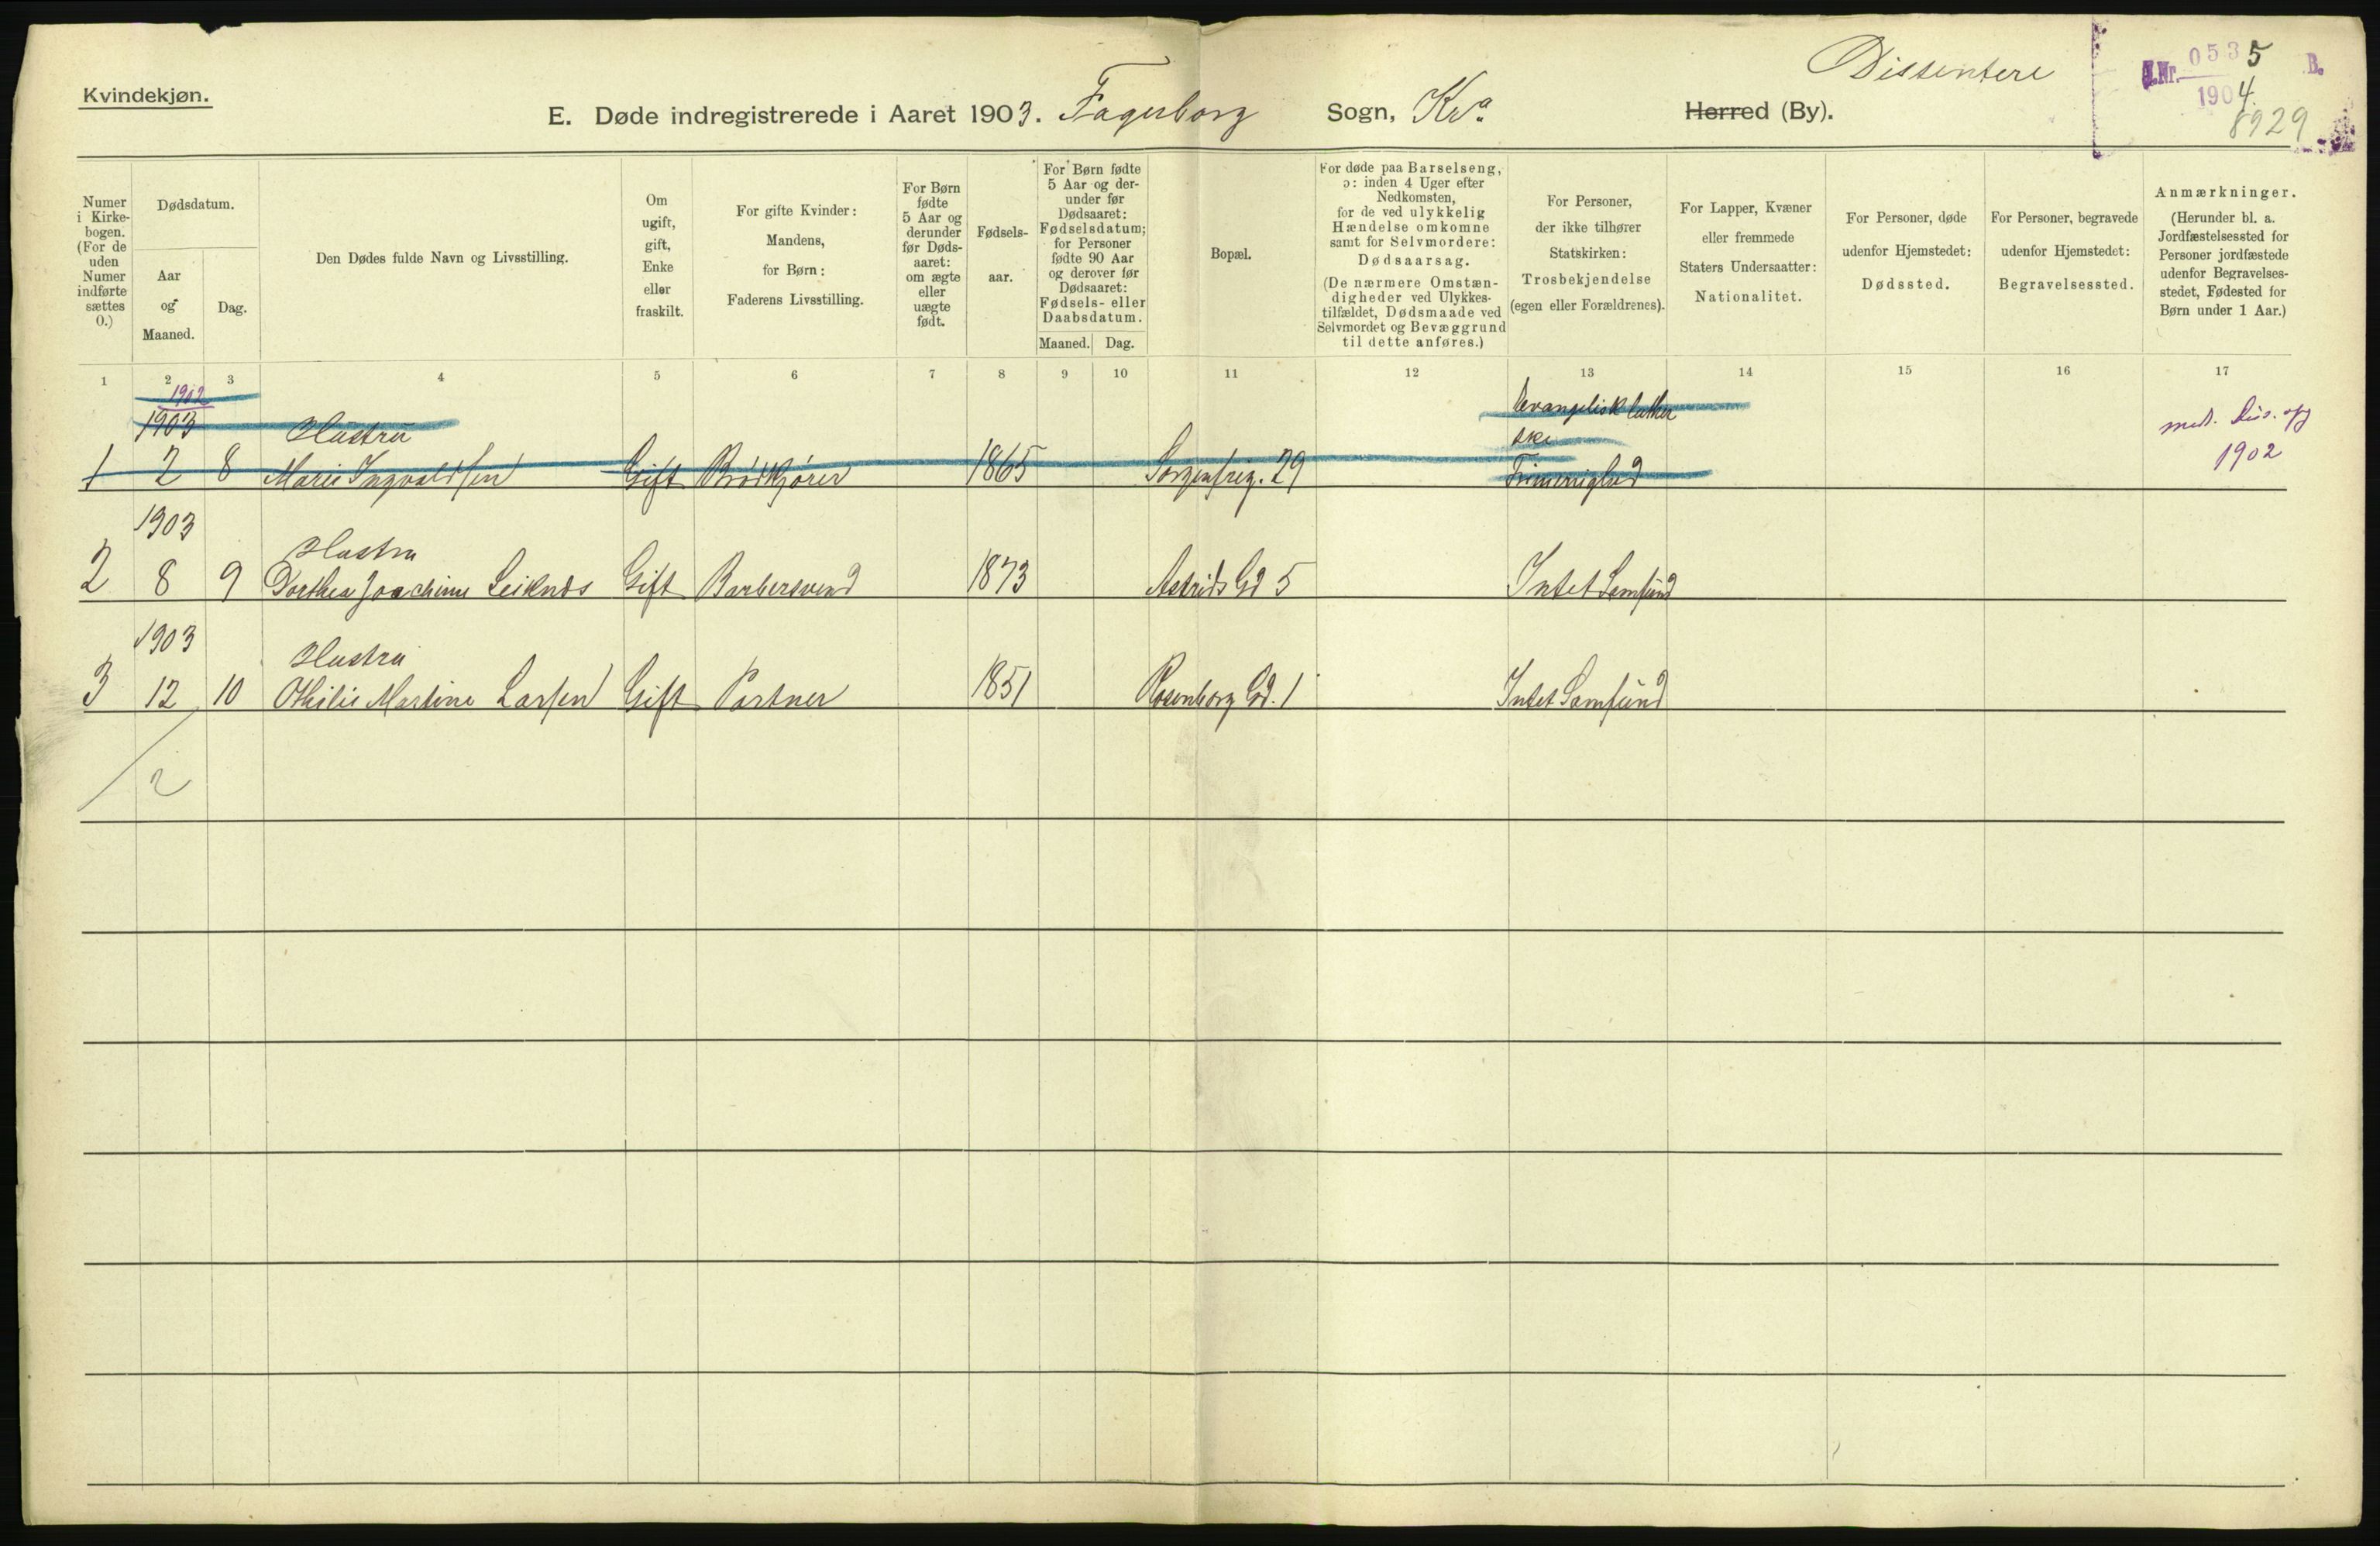 Dissentere
J.Nr. 0535 B.
1904.
8929
Kvindekjøn.
E. Døde indregistrerede i Aaret 1903. Fagerborg Sogn, Kra Herred (By).
Numer i Kirkebogen. (For de uden Numer indførte sættes 0.)
Dødsdatum.
Aar og Maaned.
Dag.
Den Dødes fulde Navn og Livsstilling.
Om ugift, gift, Enke eller fraskilt.
For gifte Kvinder: Mandens, for Børn: Faderens Livsstilling.
For Børn fødte 5 Aar og derunder før Dødsaaret: om ægte eller uægte født.
Fødselsaar.
For Børn fødte 5 Aar og derunder før Dødsaaret: Fødselsdatum; for Personer fødte 90 Aar og derover før Dødsaaret: Fødsels- eller Daabsdatum.
Maaned. Dag.
Bopæl.
For døde paa Barselseng, ɔ: inden 4 Uger efter Nedkomsten, for de ved ulykkelig Hændelse omkomne samt for Selvmordere: Dødsaarsag. (De nærmere Omstændigheder ved Ulykkestilfældet, Dødsmaade ved Selvmordet og Bevæggrund til dette anføres.)
For Personer, der ikke tilhører Statskirken: Trosbekjendelse (egen eller Forældrenes).
For Lapper, Kvæner eller fremmede Staters Undersaatter: Nationalitet.
For Personer, døde udenfor Hjemstedet: Dødssted.
For Personer, begravede udenfor Hjemstedet: Begravelsessted.
Anmærkninger. (Herunder bl. a. Jordfæstelsessted for Personer jordfæstede udenfor Begravelsesstedet, Fødested for Børn under 1 Aar.)
1 2 3 4 5 6 7 8 9 10 11 12 13 14 15 16 17
1902
1903 Hustru Evangelisk luther
ske
1 2 8 Marie Ingvaldsen Gift Brødkjører 1865 Sorgenfrig. 29 Frimenighed
1902
1903 Hustru
2 8 9 Dorthea Joachime Gift Barbersvend 1873 Astrids Gd 5 Intet Samfund
1903 Hustru
3 12 10 Othilie Martine Larsen Gift Portner 1851 Rosenborg Gd. 1 Intet Samfund
2